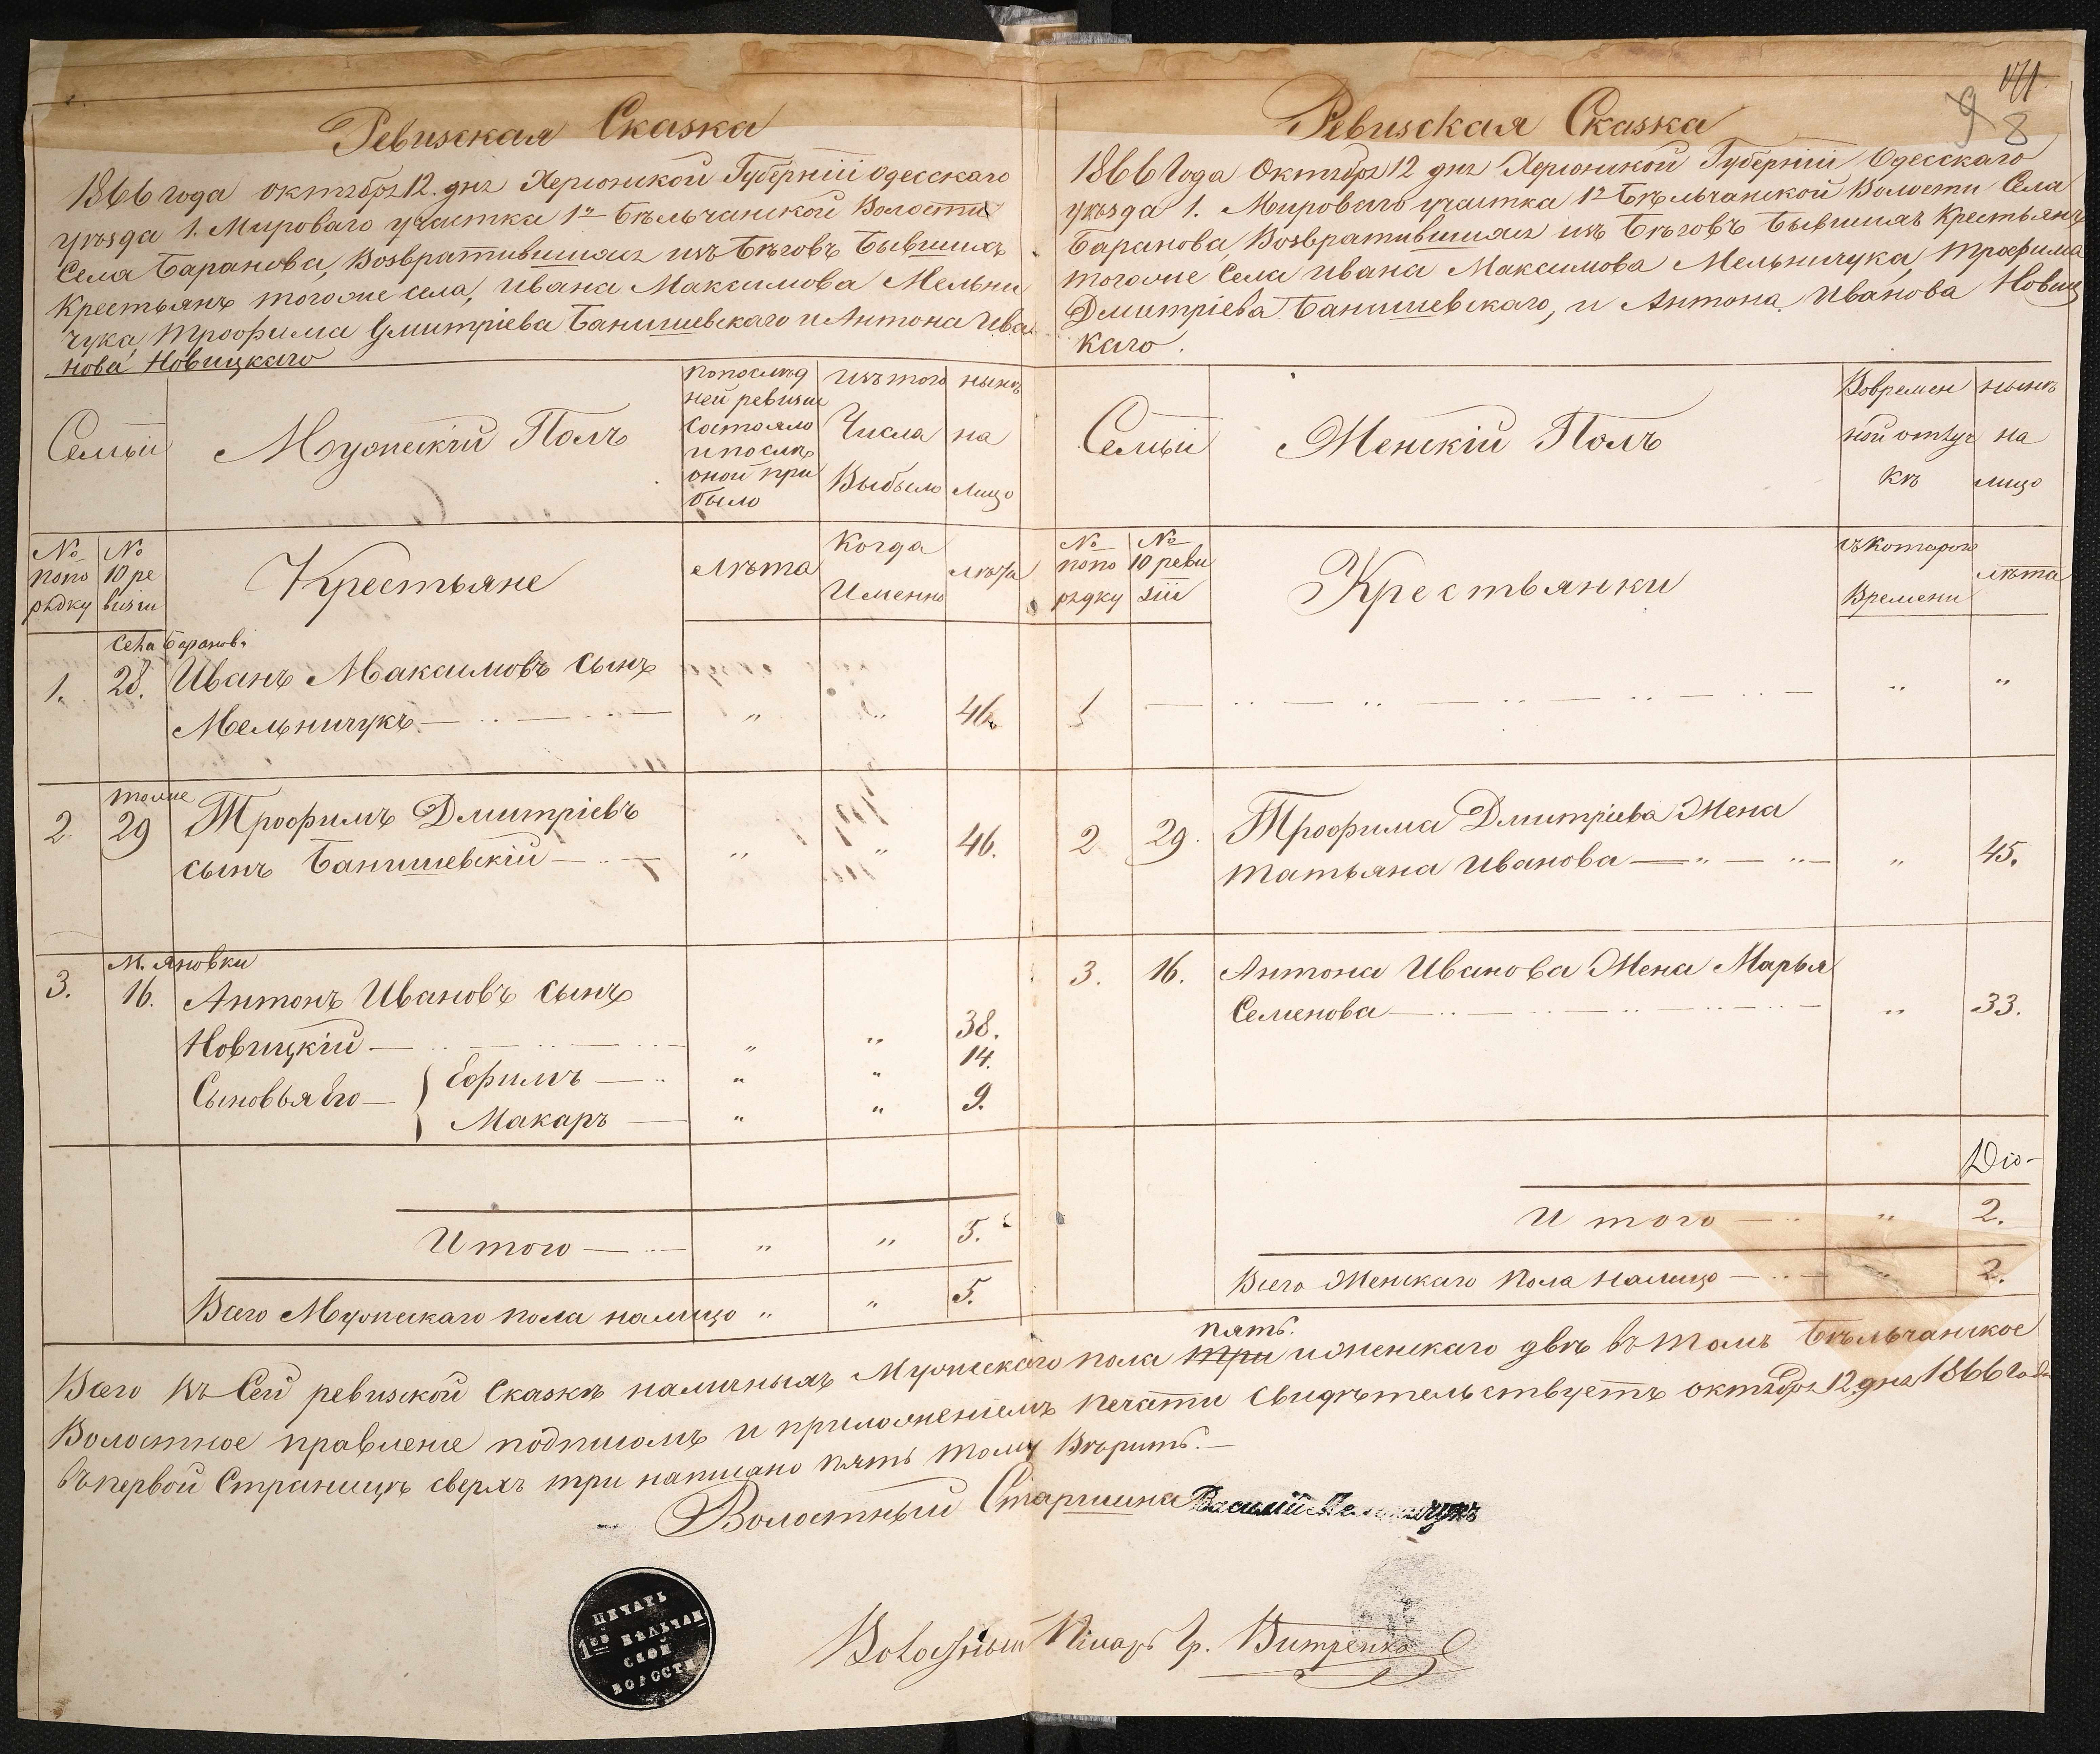 Ревизская Сказка
1866 года октября 12. дня Херсонской Губерніи Одесскаго
уѣзда 1. Мироваго участка 1й Бѣльчанской Волости
Села Баранова, Возвратившихся изъ бѣговъ бывшихъ
Крестьянъ тогоже села, Ивана Максимова Мельни
чука, Трофима Дмитріева Банишевскаго и Антона Ива
нова Новицкаго
Семьи
Мужескій Полъ
Попослѣд
ней ревизіи
состояло
и послѣ
оной при
было
Изъ того
Числа
Выбыло
нынѣ
на
лицо
№
попо
рядку
№
10 ре
визіи
Крестьяне
Лѣта
Когда
Именно
Лѣта
Села Баранова
1. 28. Иванъ Максимовъ сынъ
Мельничукъ — " " 46.
тоже
2. 29 Трофимъ Дмитріевъ
сынъ Банишевскій — " " 46.
М. Яновки
3. 16. Антонъ Ивановъ сынъ
Новицкій — " " 38.
Сыновья его — Ефимъ — " " 14.
Макаръ — " " 9.
Итого — " " 5.
Всего Мужескаго пола налицо " " 5.
171
9 8
Ревизская Сказка
1866 Года Октября 12 дня Херсонской Губерніи Одесскаго
уѣзда 1. Мироваго участка 1й Бѣльчанской Волости Села
Баранова, Возвратившихся изъ бѣговъ бывшихъ Крестьянъ
тогоже Села Ивана Максимова Мельничука, Трофима
Дмитріева Банишевскаго, и Антона Иванова Новиц
каго.
Семьи
Женскій Полъ
Вовремен
ной отлуч
кѣ
нынѣ
на
лицо
№
попо
рядку
№
10 реви
зіи
Крестьянки
съ котораго
Времени
лѣта
1 — " "
2 29. Трофима Дмитріева Жена
Татьяна Иванова — " 45.
3. 16. Антона Иванова Жена Марья
Семенова — " 33.
Итого — " 2.
Всего Женскаго пола налицо — " 2.
пять.
Всего въ Сей ревизской Сказкѣ наличныхъ Мужескаго пола три и женскаго двѣ въ томъ Бѣльчанское
Волостное правленіе подписомъ и приложеніемъ печати свидѣтельствуетъ октября 12 дня 1866 года
въ первой Страницѣ сверхъ три написано пять тому Вѣрить. —
Волостный Старшина Василій
Волостный Писарь Гр. Витренко
ПЕЧАТЬ
1ОЙ БѢЛЬЧАН
СКОЙ
ВОЛОСТИ